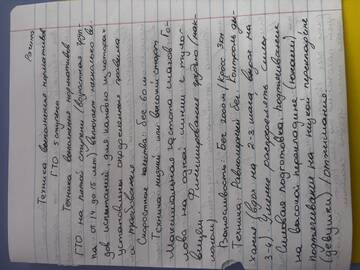 Р/зато
Техника выполнения нормативов
ГТО 5 ступени
Техника выполнения нормативов
ГТО на пятой ступени (возрастная груп-
па от 14 до 15 лет) включает несколько ви-
дов испытаний, для каждого из которых
установлены определённые правила
и требования.
Скоростные качества: Бег 60 м
Техника: низкий или высокий старт.
Максимальная частота шагов. Го-
лова на одной линии с туло-
вищем. Финиширование грудью (нак-
лоном)
Выносливость: Бег 2000м / Кросс 3км
Техника: Равномерный бег. Контроль ды-
хания (вдох на 2-3 шага, выдох на
3-4). Умение распределять силы
Силовая подготовка: подтягивание
на высокой перекладине (юноши)
подтягивание на низкой перекладине
(девушки) / отжимание.